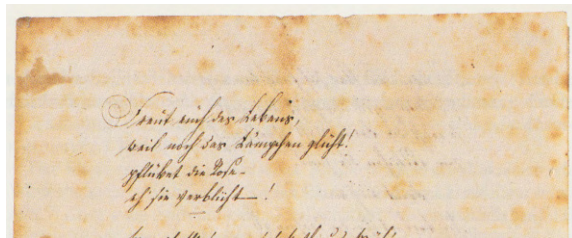 Freut euch des Lebens,
weil noch das Lämpchen glüht!
pflücket die Rose
eh sie verblüht — !